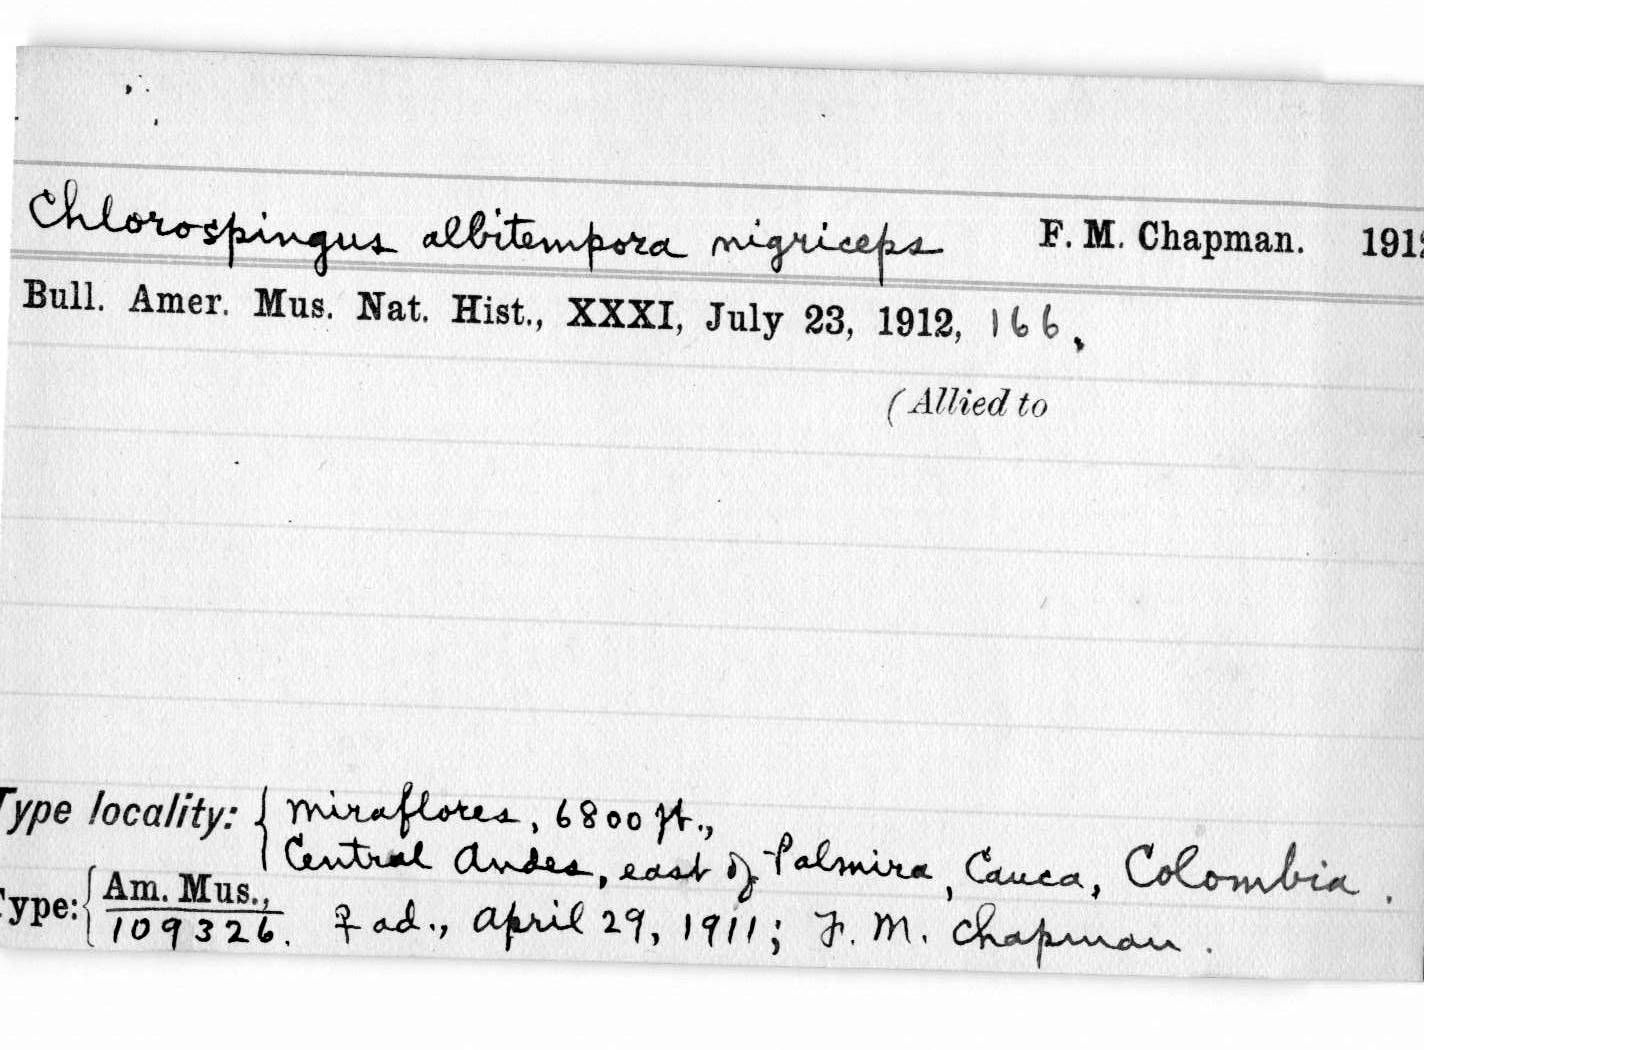 Chlorospingus albitempora nigriceps F. M. Chapman. 191
Bull. Amer. Mus. Nat. Hist., XXXI, July 23, 1912, 166.
(Allied to
Type locality: { Miraflores, 6800 ft.,
Central Andes, east of Palmira, Cauca, Colombia.
Type: { Am. Mus.,
109326. ♀ ad., April 29, 1911; F. M. Chapman.